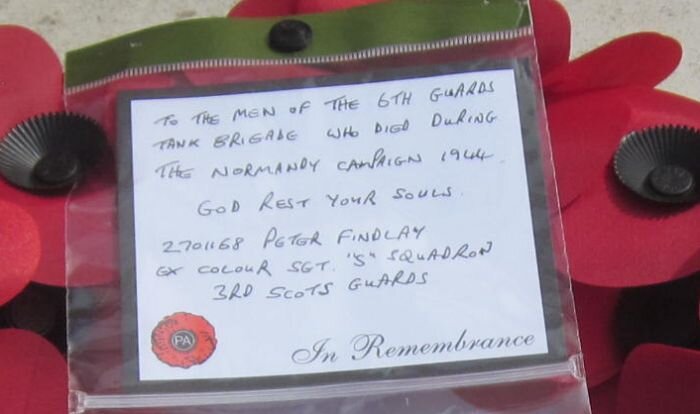 TO THE MEN OF THE 6TH GUARDS
TANK BRIGADE WHO DIED DURING
THE NORMANDY CAMPAIGN 1944.
GOD REST YOUR SOULS.
2701168 PETER FINDLAY
EX COLOUR SGT. "S" SQUADRON
3RD SCOTS GUARDS
PA
In Remembrance